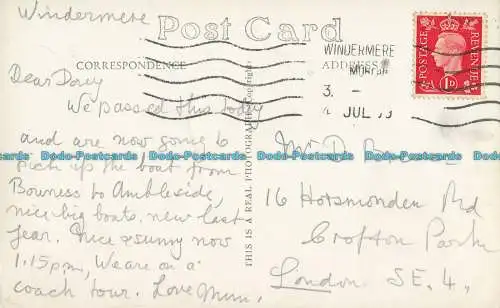 Windermere
Post Card
CORRESPONDENCE
ADDRESS
WINDERMERE
3.
JUL
POSTAGE
REVENUE
1D
Dear Davy
We passed this today
and are now going to
pick up the boat from
Bowness to Ambleside,
nice big boats, new last
year. Nice & sunny now
1.15pm, We are on a
coach tour. Love Mum.
THIS IS A REAL PHOTOGRAPH
Copyright
Mr D.
16 Horsmonden Rd
Crofton Park
London S.E.4.
Dodo-Postcards Dodo-Postcards Dodo-Postcards Dodo-Postcards Dodo-Postcards